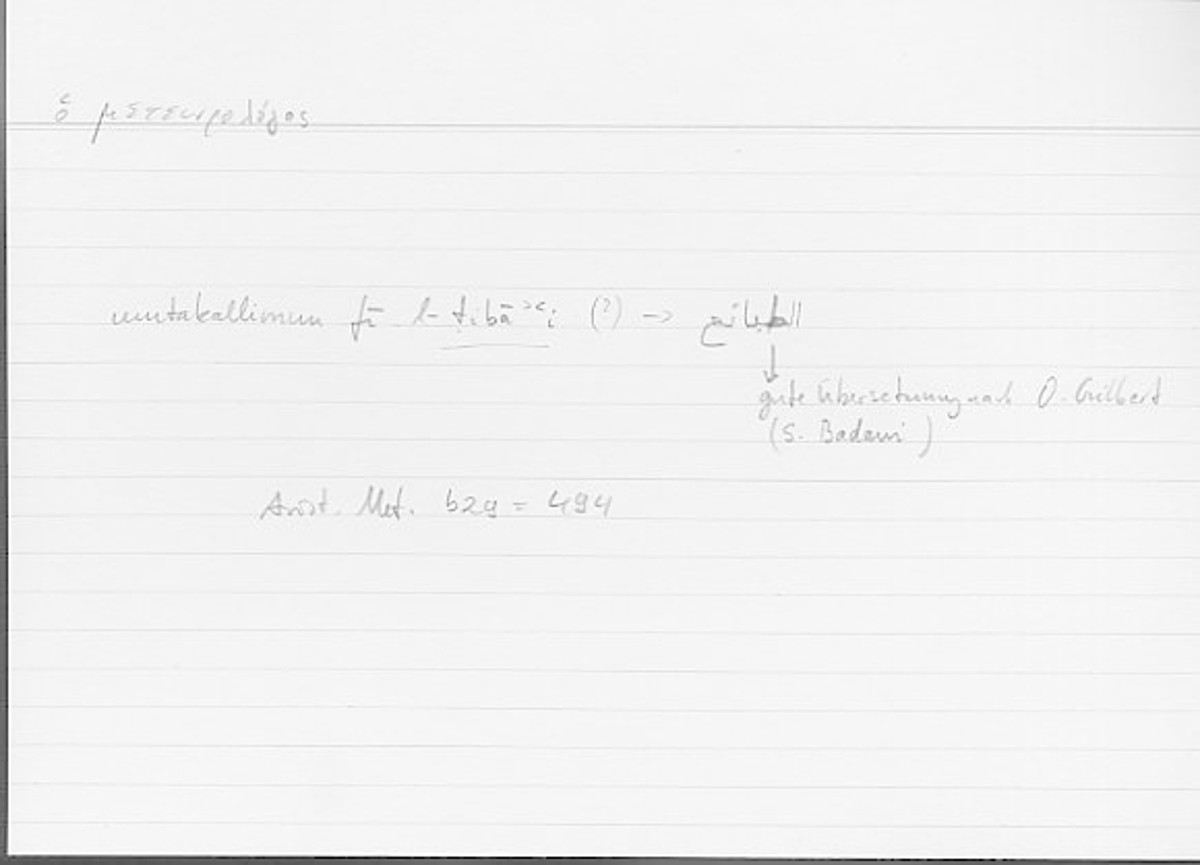 ὁ μετεωρολόγος
mutakallimun fī l-ṭibāʾiʿi (?) → الطبائع
↓
gute Übersetzung nach O. Gilbert
(S. Badawi)
Arist. Met. b29 = 494